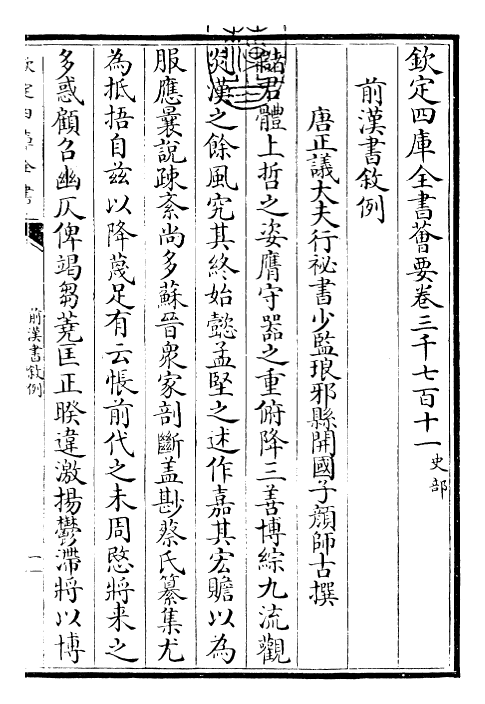 欽定四庫全書薈要卷三千七百十一 史部
前漢書敘例
唐正議大夫行祕書少監琅邪縣開國子顔師古撰
儲君體上哲之姿膺守器之重俯降三善博綜九流觀
炎漢之餘風究其終始懿孟堅之述作嘉其宏贍以為
服應曩說疎紊尚多蘇晉衆家剖斷盖尠蔡氏纂集尤
為抵捂自兹以降蔑足有云悵前代之未周愍將来之
多惑顧召幽仄俾竭芻蕘匡正睽違激揚鬱滯將以博
欽定四庫全書
前漢書敘例
一